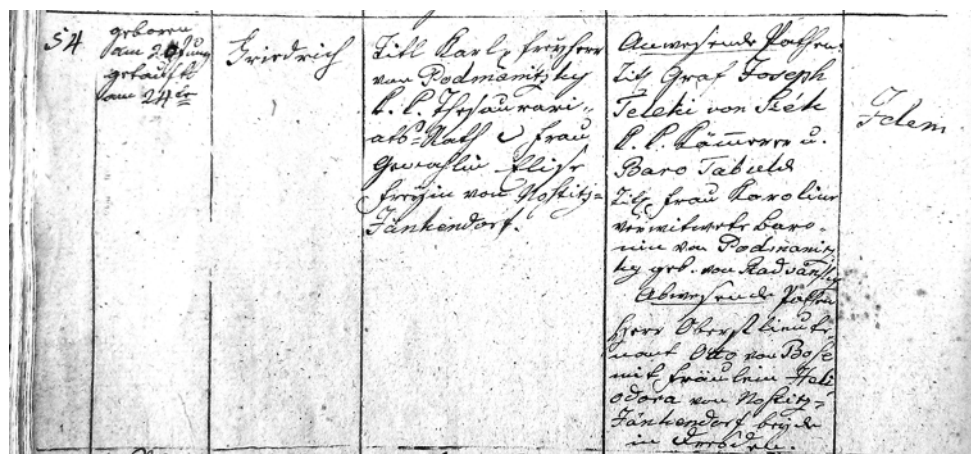 54
geboren
am 20 Juny
getauft
am 24tn
Friedrich
Titl Karl, Freyherr
von Podmanitzky
k. k. Thesaurari-
ats-Rath & Frau
Gemahlin Elise
Freyin von Nostitz=
Jänkendorf.
Anwesende Pathen:
Titl Graf Joseph
Teleki von Szék
k. k. Kämmerer u.
Baro
Titl Frau Karoline
verwitwete Baro-
nin von Podmanitz
ky geb. von Radvánsky
Abwesende Pathen
Herr Oberstlieute-
nant Otto von Bose
mit Fräulein Heli
odora von Nostitz=
Jänkendorf beyde
in Dresden.
Idem